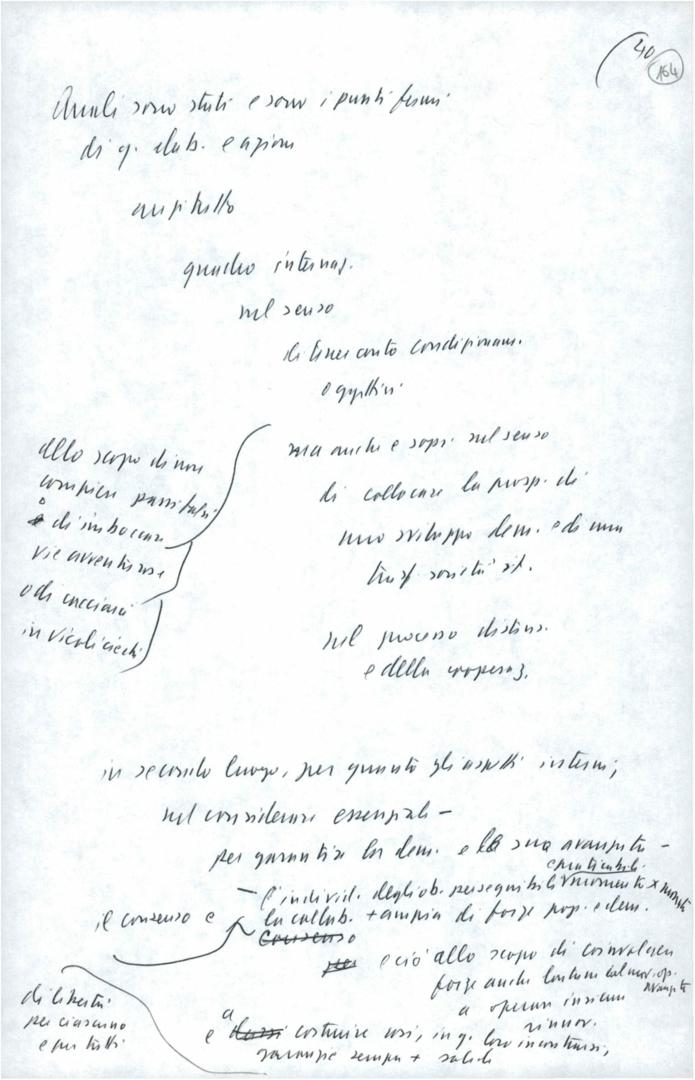 40
164
Quali sono stati e sono i punti fermi
di q. elab. e azione
anzitutto
quadro internaz.
nel senso
di tener conto condizionam.
oggettivi
ma anche e sopr. nel senso
di collocare la prosp. di
uno sviluppo dem. e di una
trasf società it.
nel processo distens.
e della cooperaz.
allo scopo di non
compiere passi falsi
o di imboccare
vie avventurose
o di cacciarci
in vicoli ciechi
in secondo luogo, per quanto gli aspetti interni,
nel considerare essenziali –
per garantire la dem. e la sua avanzata –
e praticabili
– l'individ. degli ob. perseguibili momento x momento
il consenso e
la collab. + ampia di forze pop. e dem.
Consenso
per e ciò allo scopo di coinvolgere
forze anche lontane dal mov. op.
avanzate
a operare insieme
rinnov.
di libertà
per ciascuno
e per tutti
e a costruire così, in q. loro incontrarsi,
garanzie sempre + solide